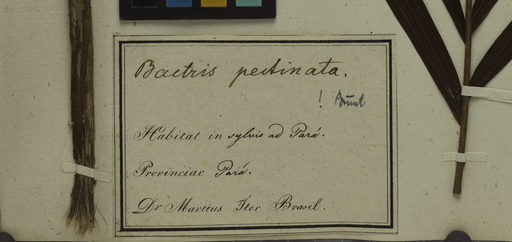 Bactris pectinata.
!
Habitat in sylvis ad Pará.
Provinciae Pará.
Dr Martius Iter Brasil.